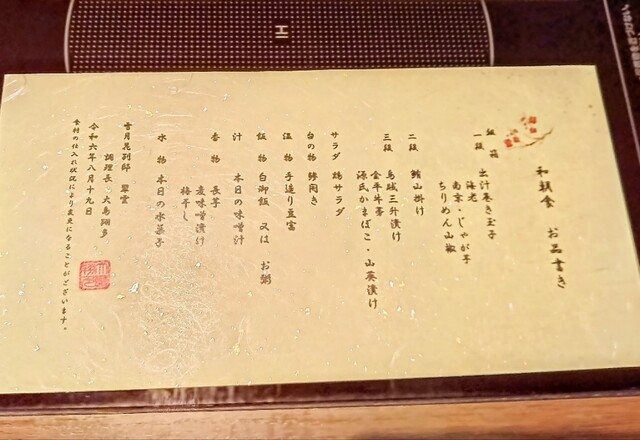 和朝食　お品書き
組箱
一段　出汁巻き玉子
海老
南京・じゃが芋
ちりめん山椒
二段　鮪山掛け
三段　烏賊三升漬け
金平牛蒡
源氏かまぼこ・山葵漬け
サラダ　鶏サラダ
台の物　鯵開き
温物　手造り豆富
飯物　白御飯　又は　お粥
汁　本日の味噌汁
香物　長芋
麦味噌漬け
梅干し
水物　本日の水菓子
雪月花別邸　翠雲
調理長　大島翔多
令和六年八月十九日
食材の仕入れ状況により変更になることがございます。
エ